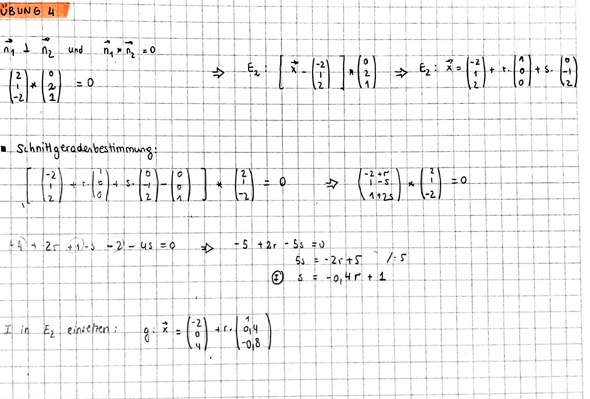 ÜBUNG 4
n⃗₁ ⊥ n⃗₂ und n⃗₁ * n⃗₂ = 0
(2 1 -2) * (0 2 1) = 0 ⇒ E₂: [x⃗ - (-2 1 2)] * (0 2 1) ⇒ E₂: x⃗ = (-2 1 2) + r· (1 0 0) + s· (0 -1 2)
▪ Schnittgeradenbestimmung:
[(-2 1 2) + r· (1 0 0) + s· (0 -1 2) - (0 0 1)] * (2 1 -2) = 0 ⇒ (-2+r 1-s 1+2s) * (2 1 -2) = 0
-4 + 2r + 1 - s - 2 - 4s = 0 ⇒ -5 + 2r - 5s = 0
5s = -2r + 5 /:5
Ⓘ s = -0,4r + 1
I in E₂ einsetzen: g: x⃗ = (-2 0 4) + r· (1 0,4 -0,8)